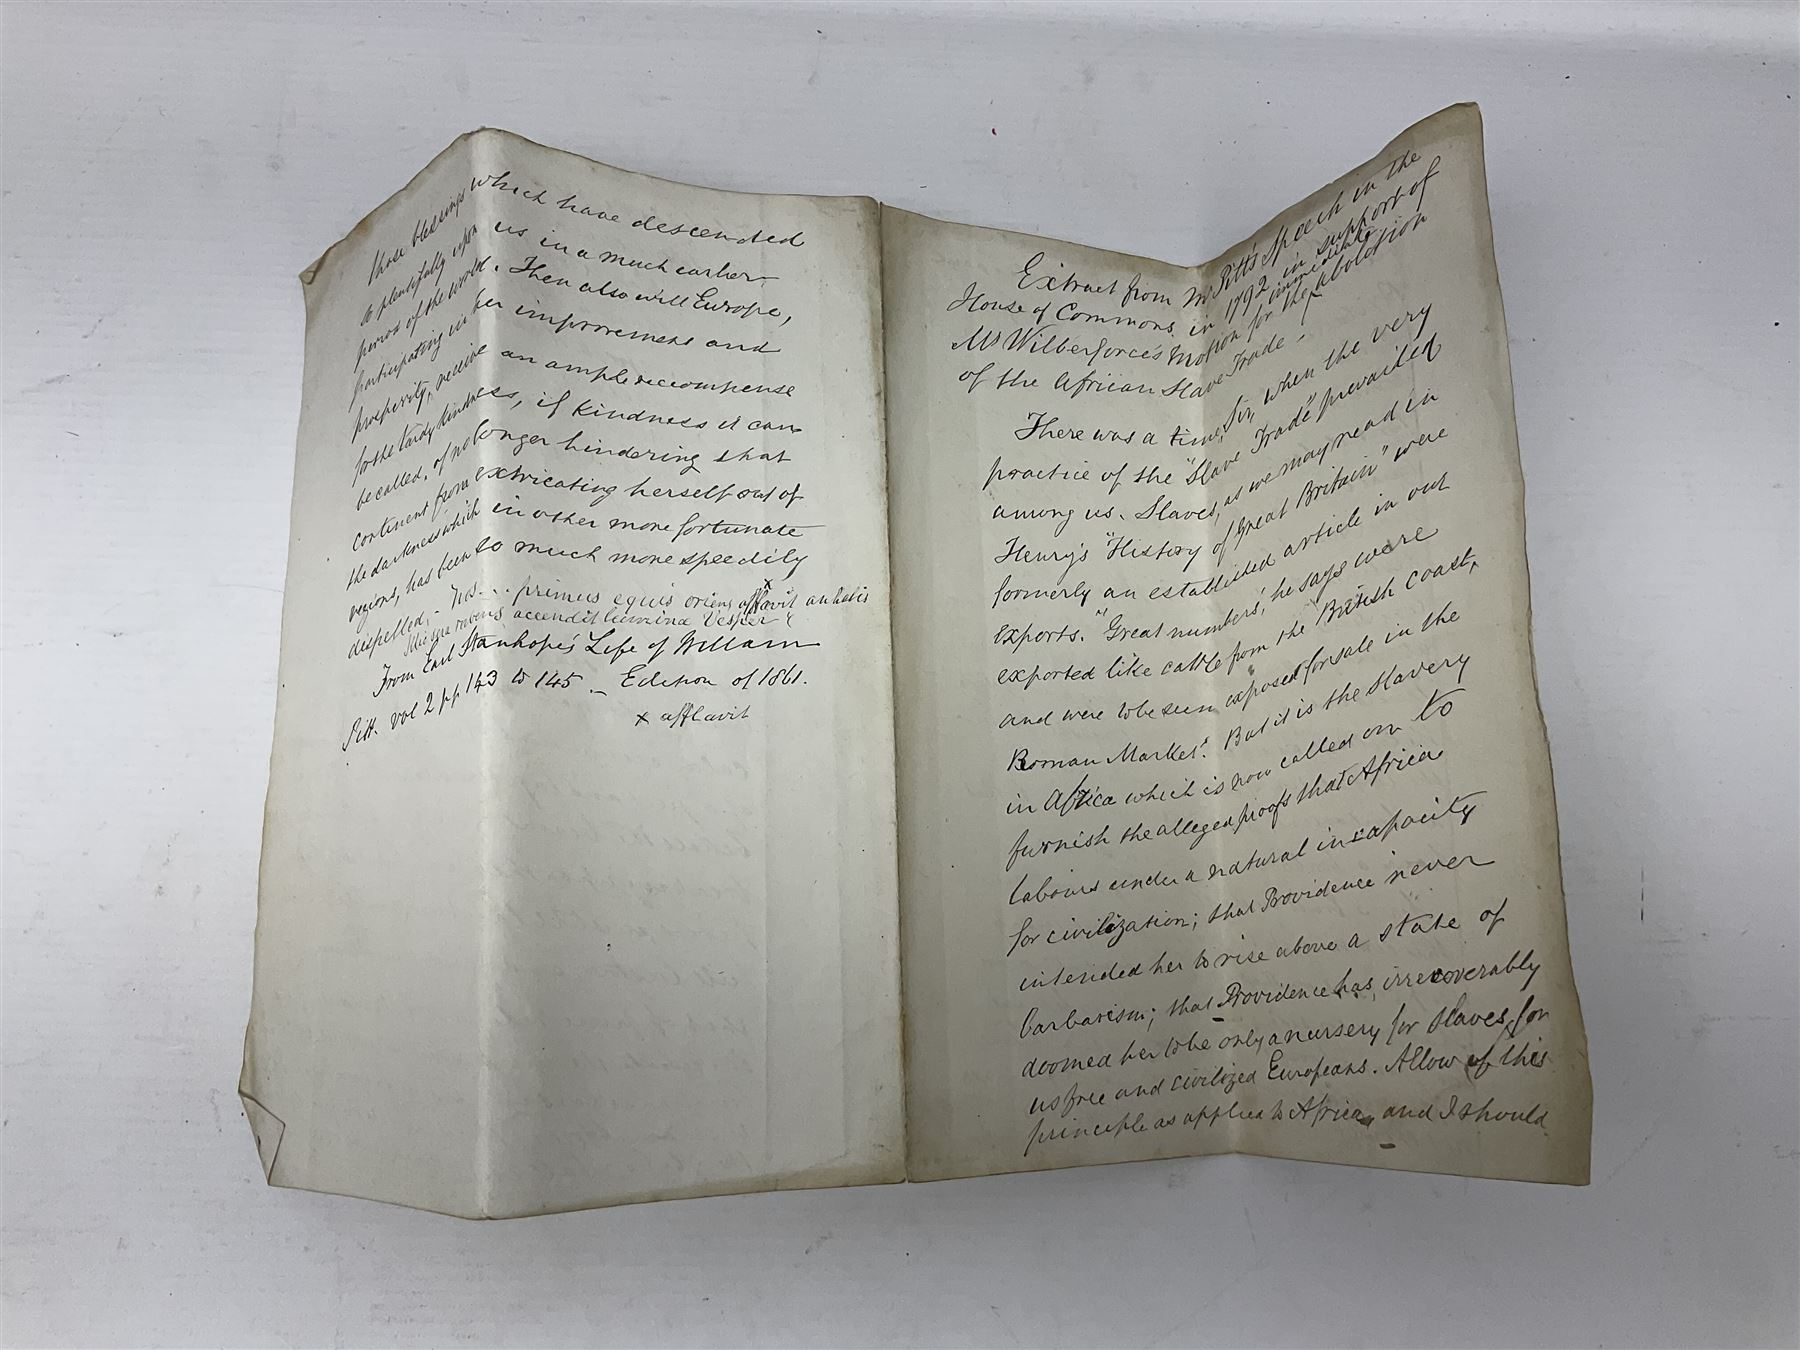 those blessings which have descended
so plentifully upon us in a much earlier
period of the world. Then also will Europe,
participating in her improvement and
prosperity, receive an ample recompense
for the tardy kindness, if kindness it can
be called, of no longer hindering that
continent from extricating herself out of
the darkness which in other more fortunate
regions, has been so much more speedily
dispelled; Nos... primus equis oriens afflavit anhelis
Illic sera rubens accendit lumina Vesper"
From Earl Stanhope's Life of William
Pitt. vol 2 pp 143 to 145 - Edition of 1861.
x afflavit
Extract from Mr Pitt's Speech in the
House of Commons in 1792 in support of
Mr Wilberforce's Motion for the immediate abolition
of the African Slave Trade.
There was a time, Sir, when the very
practice of the "Slave Trade" prevailed
among us. Slaves, as we may read in
Henry's "History of Great Britain" were
formerly an established article in our
exports. "Great numbers", he says were
exported like cattle from the British coast,
and were to be seen exposed for sale in the
Roman Market". But it is the slavery
in Africa which is now called on to
furnish the alleged proofs that Africa
labours under a natural incapacity
for civilization; that Providence never
intended her to rise above a state of
barbarism; that Providence has irrecoverably
doomed her to be only a nursery for slaves for
us free and civilized Europeans. Allow of this
principle as applied to Africa, and I should